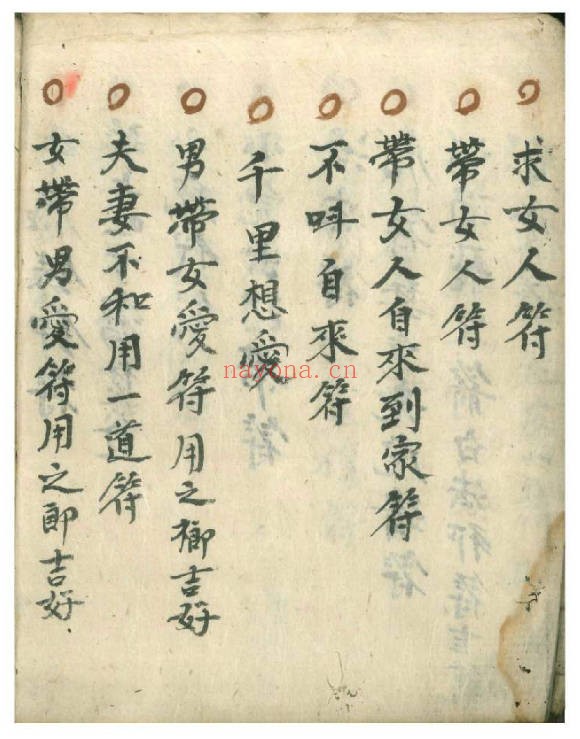 求女人符
帶女人符
帶女人自來到家符
不呌自來符
千里想愛
男帶女愛符用之擳吉好
夫妻不和用一道符
女帶男愛符用之即吉好
nayona.cn